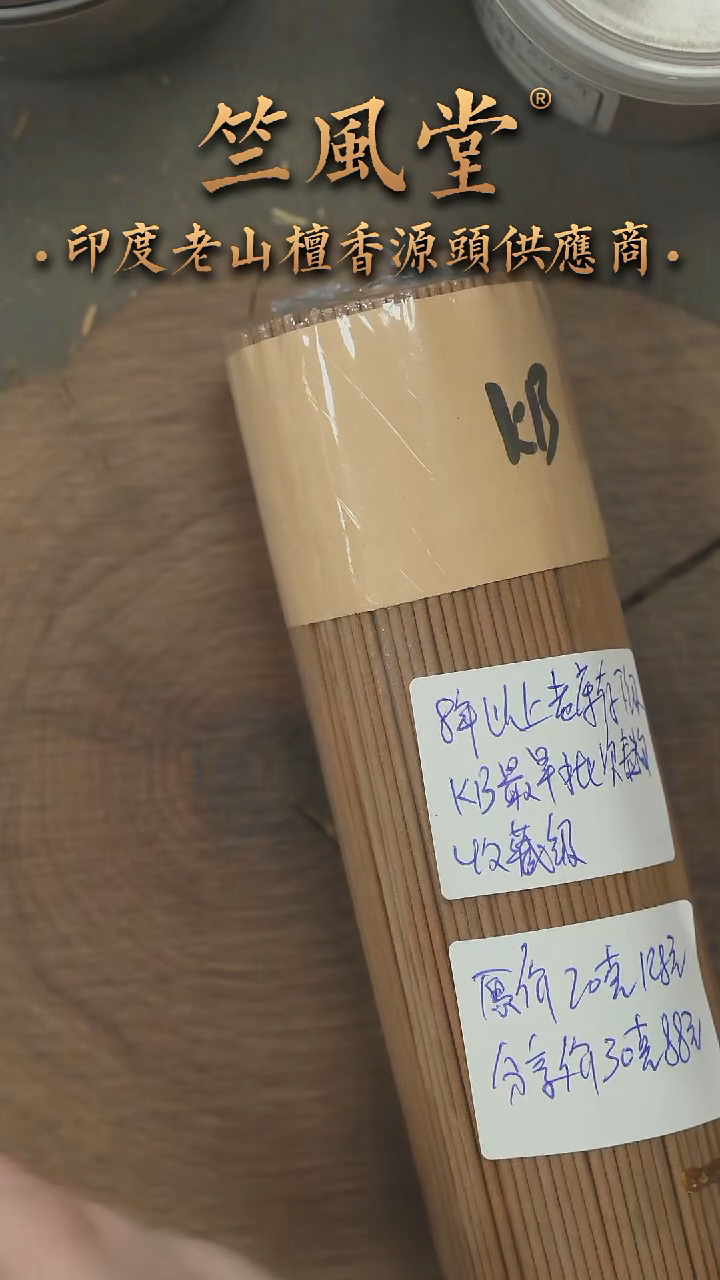 竺風堂®
·印度老山檀香源頭供應商·
KB
8年以上老库存
KB最早批次
收藏级
原价20克128元
分享价30克88元